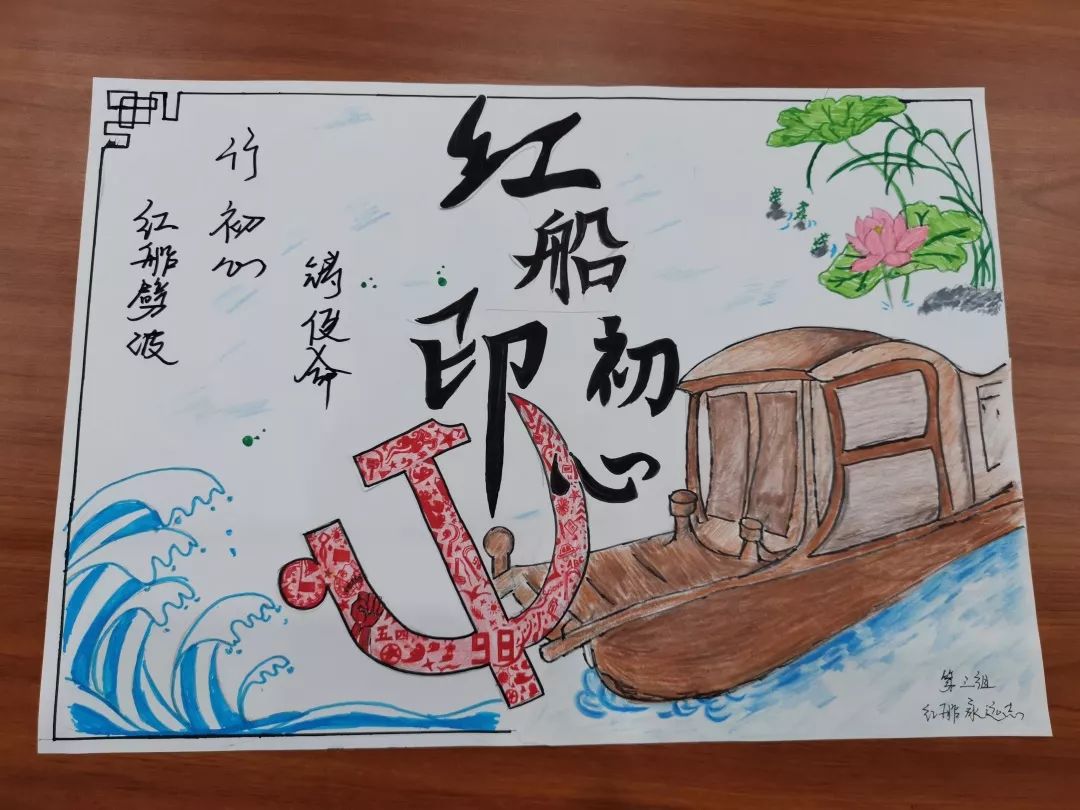 红船印初心
红船劈波
行初心
铸使命
五四
98
第三组
红船永远